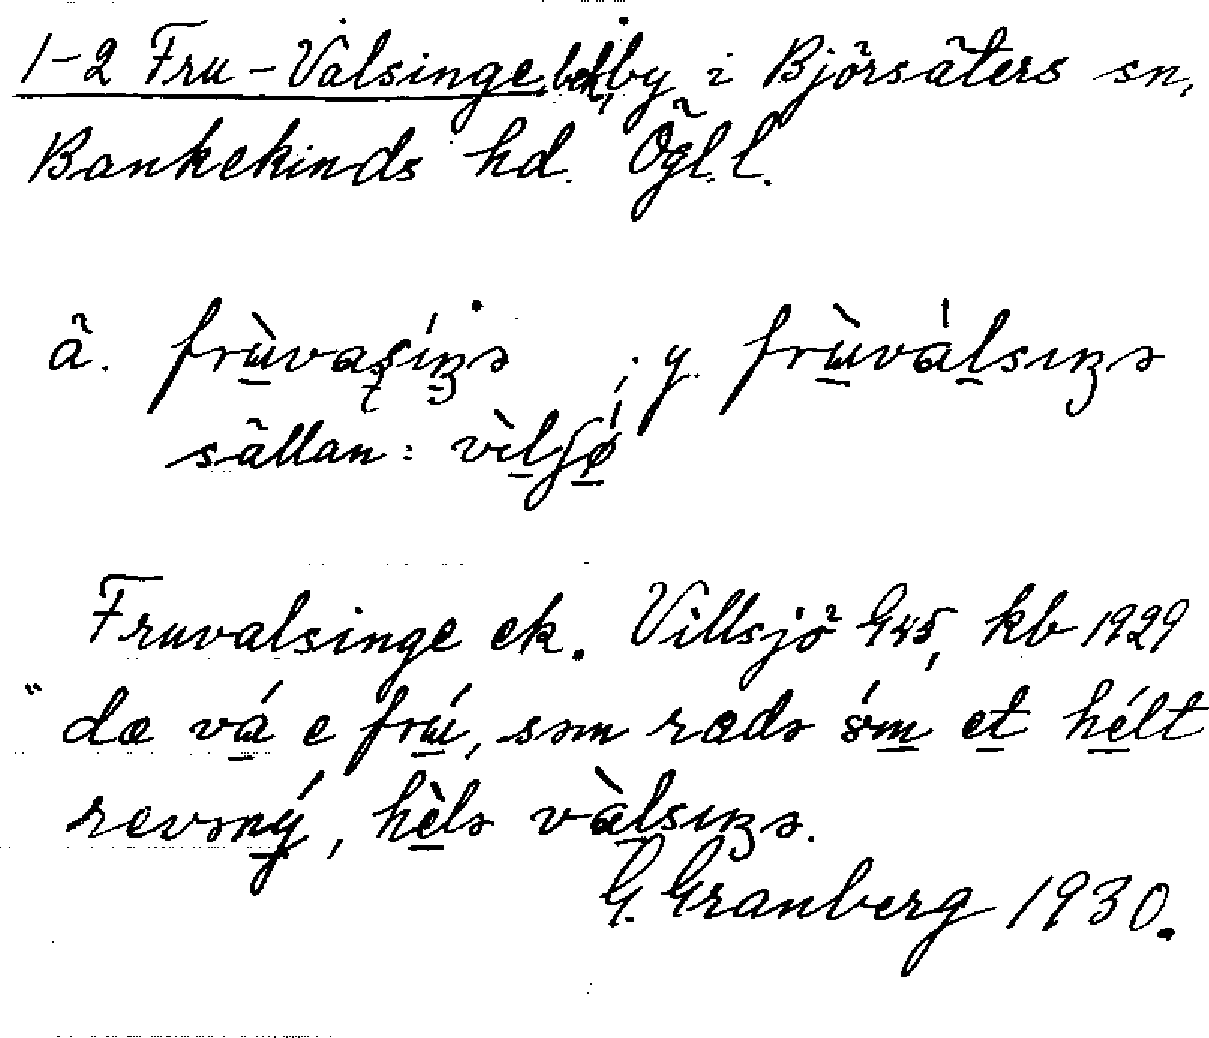 1-2 Fru-Valsinge by i Björsäters sn,
Bankekinds hd. Ögl. l.
ä. frùvaṣíŋə ; y. frùválsıŋə
sällan: vìlʃǿ
Fruvalsinge ek. Villsjö G45, kb 1929
"dæ vá e frú, səm rædə óm et hélt
revəný, hèlə vàlsıŋə.
G. Granberg 1930.